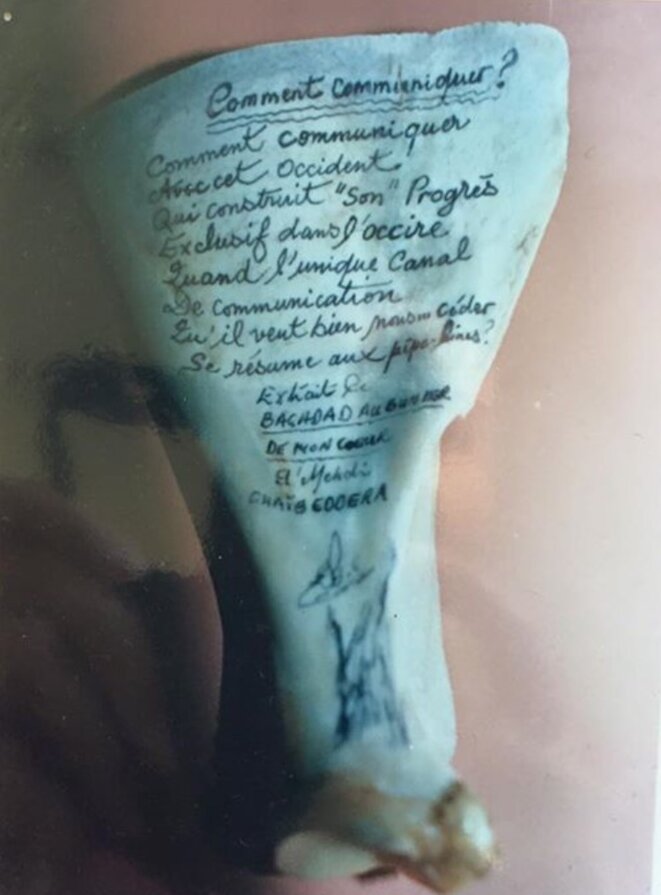 Comment communiquer?
Comment communiquer
Avec cet Occident
Qui construit "Son" Progrès
Exclusif dans l'occire
Quand l'unique Canal
De communication
Qu'il veut bien nous céder
Se résume aux pipe-lines?
Extrait de
BAGHDAD AU
DE MON COEUR
El'Mehdi
CHAÏBEDDERA